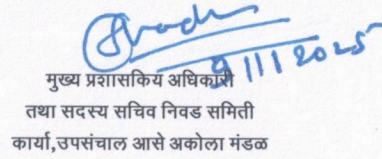 9/11/2025
मुख्य प्रशासकिय अधिकारी
तथा सदस्य सचिव निवड समिती
कार्या,उपसंचाल आसे अकोला मंडळ